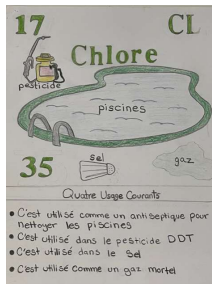 17 CL
Chlore
pesticide
piscines
35
sel
gaz
Quatre Usage Courants
• C'est utilisé comme un antiseptique pour
nettoyer les piscines
• C'est utilisé dans le pesticide DDT
• C'est utilisé dans le Sel
• C'est utilisé comme un gaz mortel